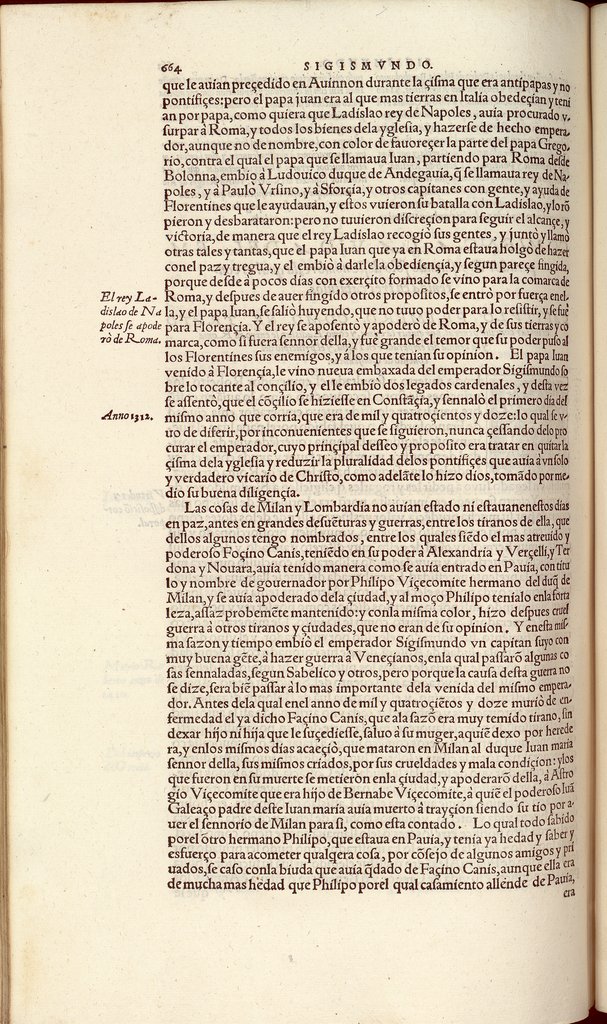 664
SIGISMVNDO.
que le auian preçedido en Auinnon durante la çisma que era antipapas y no
pontifiçes: pero el papa juan era al que mas tierras en Italia obedeçian y teni
an por papa, como quiera que Ladislao rey de Napoles, auia procurado v-
surpar à Roma, y todos los bienes dela yglesia, y hazerse de hecho empera-
dor, aunque no de nombre, con color de fauoreçer la parte del papa Grego-
rio, contra el qual el papa que se llamaua Iuan, partiendo para Roma desde
Bolonna, embio à Ludouico duque de Andegauia, q̃ se llamaua rey de Na-
poles, y à Paulo Vrsino, y à Sforçia, y otros capitanes con gente, y ayuda de
Florentines que le ayudauan, y estos vuieron su batalla con Ladislao, y lo rõ
pieron y desbarataron: pero no tuuieron discreçion para seguir el alcançe, y
victoria, de manera que el rey Ladislao recogio sus gentes, y juntò y llamò
otras tales y tantas, que el papa Iuan que ya en Roma estaua holgò de hazer
con el paz y tregua, y el embiò à darle la obediençia, y segun pareçe fingida,
porque desde à pocos dias con exerçito formado se vino para la comarca de
El rey La-
dislao de Na
poles se apode
rò de Roma.
Roma, y despues de auer fingido otros propositos, se entrò por fuerça enel-
la, y el papa Iuan, se saliò huyendo, que no tuuo poder para lo resistir, y se fuè
para Florençia. Y el rey se aposentò y apoderò de Roma, y de sus tierras y co
marca, como si fuera sennor della, y fuè grande el temor que su poder puso al
los Florentines sus enemigos, y à los que tenian su opinion. El papa Iuan
venido à Florençia, le vino nueua embaxada del emperador Sigismundo so
bre lo tocante al conçilio, y el le embiò dos legados cardenales, y desta vez
se assentò, que el cõçilio se hiziesse en Constãçia, y sennalò el primero dia del
Anno 1312.
mismo anno que corria, que era de mil y quatroçientos y doze: lo qual se v-
uo de diferir, por inconuenientes que se siguieron, nunca çessando delo pro
curar el emperador, cuyo prinçipal desseo y proposito era tratar en quitar la
çisma dela yglesia y reduzir la pluralidad delos pontifiçes que auia à vn solo
y verdadero vicario de Christo, como adelãte lo hizo dios, tomãdo por me-
dio su buena diligençia.
Las cosas de Milan y Lombardia no auian estado ni estauan enestos dias
en paz, antes en grandes desuẽturas y guerras, entre los tiranos de ella, que
dellos algunos tengo nombrados, entre los quales siẽdo el mas atreuido y
poderoso Foçino Canis, teniẽdo en su poder à Alexandria y Verçelli, y Ter
dona y Nouara, auia tenido manera como se auia entrado en Pauia, con titu
lo y nombre de gouernador por Philipo Viçecomite hermano del duq̃ de
Milan, y se auia apoderado dela çiudad, y al moço Philipo tenialo enla forta
leza, assaz probemẽte mantenido: y conla misma color, hizo despues cruel
guerra à otros tiranos y çiudades, que no eran de su opinion. Y enesta mis-
ma sazon y tiempo embiò el emperador Sigismundo vn capitan suyo con
muy buena gẽte, à hazer guerra à Veneçianos, enla qual passarõ algunas co
sas sennaladas, segun Sabelico y otros, pero porque la causa desta guerra no
se dize, sera biẽ passar à lo mas importante dela venida del mismo empera-
dor. Antes dela qual enel anno de mil y quatroçiẽtos y doze muriò de en-
fermedad el ya dicho Façino Canis, que ala sazõ era muy temido tirano, sin
dexar hijo ni hija que le suçediesse, saluo à su muger, aquiẽ dexo por herede
ra, y enlos mismos dias acaeçiò, que mataron en Milan al duque Iuan maria
sennor della, sus mismos criados, por sus crueldades y mala condiçion: y los
que fueron en su muerte se metieron enla çiudad, y apoderarõ della, à Astro
gio Viçecomite que era hijo de Bernabe Viçecomite, à quiẽ el poderoso Iuã
Galeaço padre deste Iuan maria auia muerto à trayçion siendo su tio por a-
uer el sennorio de Milan para si, como esta contado. Lo qual todo sabido
porel otro hermano Philipo, que estaua en Pauia, y tenia ya hedad y saber y
esfuerço para acometer qualqera cosa, por cõsejo de algunos amigos y pri
uados, se caso conla biuda que auia q̃dado de Façino Canis, aunque ella era
de mucha mas hedad que Philipo porel qual casamiento allende de Pauia,
era